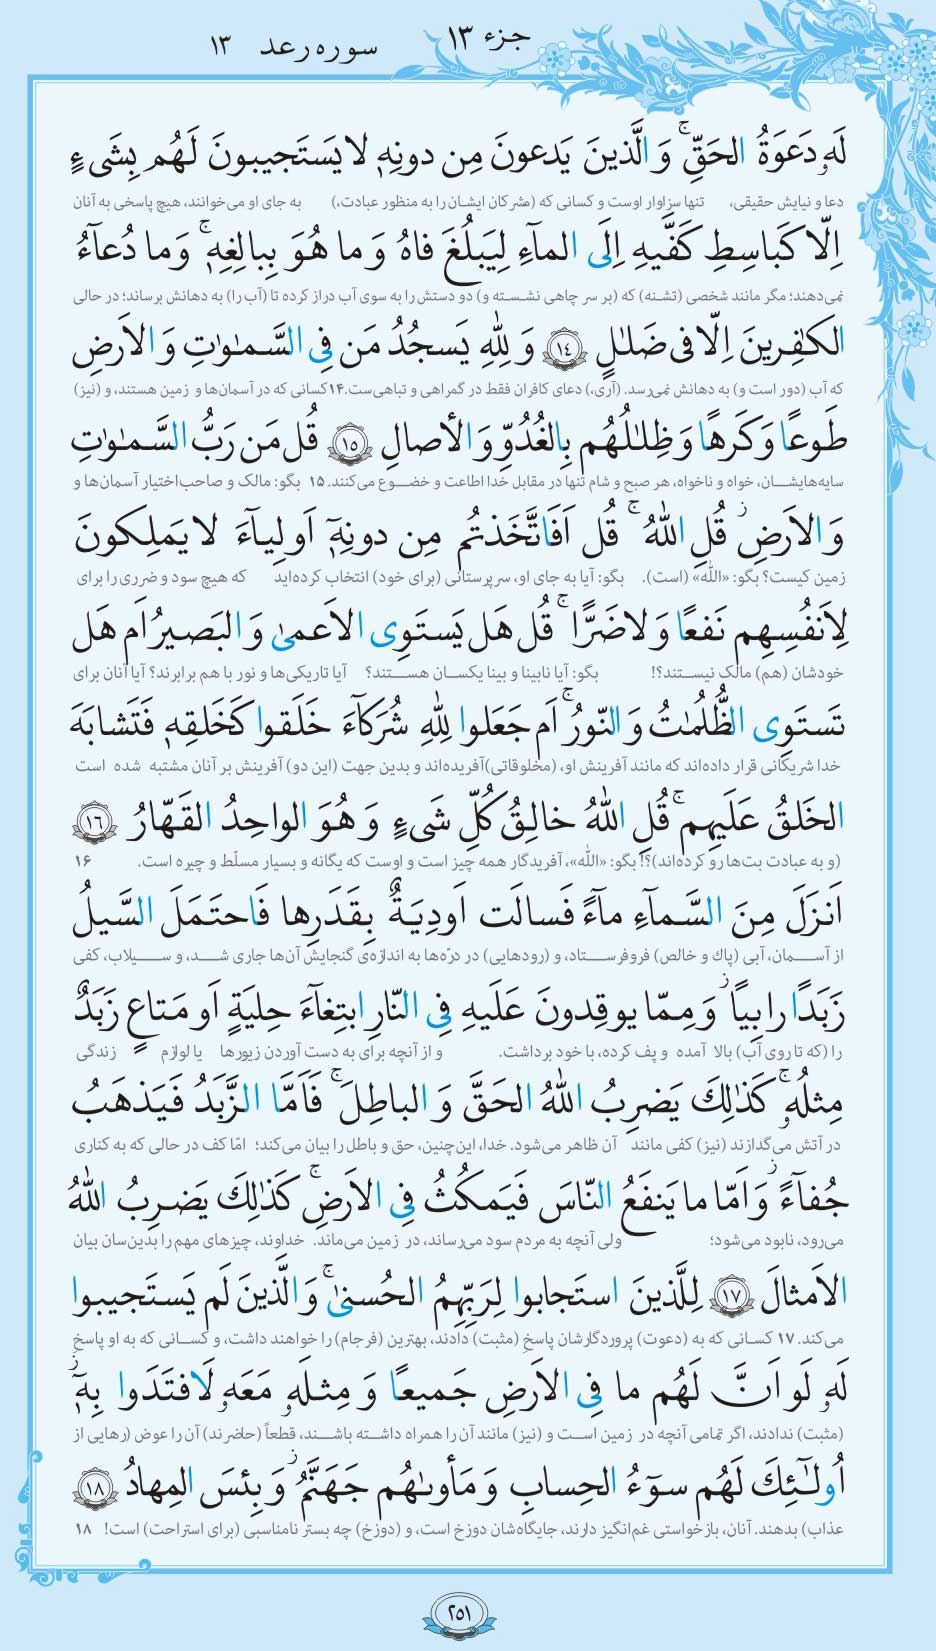 جزء ۱۳
سوره رعد ۱۳
لَهُ دَعوَةُ الحَقِّ ۚ وَالَّذينَ يَدعونَ مِن دونِهِ لا يَستَجيبونَ لَهُم بِشَیءٍ
دعا و نیایش حقیقی، تنها سزاوار اوست و کسانی که (مشرکان ایشان را به منظور عبادت،) به جای او می‌خوانند، هیچ پاسخی به آنان
اِلّا كَباسِطِ كَفَّيهِ اِلَى الماۤءِ لِيَبلُغَ فاهُ وَ ما هُوَ بِبالِغِهِ ۚ وَ ما دُعاۤءُ
نمی‌دهند؛ مگر مانند شخصی (تشنه) که (بر سر چاهی نشسته و) دو دستش را به سوی آب دراز کرده تا (آب را) به دهانش برساند؛ در حالی
الكٰفِرينَ اِلّا فى ضَلٰلٍ ۱۴ وَ لِلّٰهِ يَسجُدُ مَن فِى السَّمٰوٰتِ وَ الاَرضِ
که آب (دور است و) به دهانش نمی‌رسد. (آری،) دعای کافران فقط در گمراهی و تباهی‌ست.۱۴ کسانی که در آسمان‌ها و زمین هستند، و (نیز)
طَوعًا وَ كَرهًا وَ ظِلٰلُهُم بِالغُدُوِّ وَ الأصالِ ۱۵ قُل مَن رَبُّ السَّمٰوٰتِ
سایه‌هایشان، خواه و ناخواه، هر صبح و شام تنها در مقابل خدا اطاعت و خضوع می‌کنند. ۱۵ بگو: مالک و صاحب‌اختیار آسمان‌ها و
وَ الاَرضِ ۖ قُلِ اللّٰهُ ۚ قُل اَفَاتَّخَذتُم مِن دونِهِۤ اَولِياۤءَ لا يَملِكونَ
زمین کیست؟ بگو: «اللّٰه» (است). بگو: آیا به جای او، سرپرستانی (برای خود) انتخاب کرده‌اید که هیچ سود و ضرری را برای
لِاَنفُسِهِم نَفعًا وَ لا ضَرًّا ۚ قُل هَل يَستَوِى الاَعمىٰ وَ البَصيرُ اَم هَل
خودشان (هم) مالک نیستند؟! بگو: آیا نابینا و بینا یکسان هستند؟ آیا تاریکی‌ها و نور با هم برابرند؟ آیا آنان برای
تَستَوِى الظُّلُمٰتُ وَ النّورُ ۚ اَم جَعَلوا لِلّٰهِ شُرَكاۤءَ خَلَقوا كَخَلقِهِ فَتَشابَهَ
خدا شریکانی قرار داده‌اند که مانند آفرینش او، (مخلوقاتی) آفریده‌اند و بدین جهت (این دو) آفرینش بر آنان مشتبه شده است
الخَلقُ عَلَيهِم ۚ قُلِ اللّٰهُ خالِقُ كُلِّ شَیءٍ وَ هُوَ الواحِدُ القَهّارُ ۱۶
(و به عبادت بت‌ها رو کرده‌اند)؟! بگو: «اللّٰه»، آفریدگار همه چیز است و اوست که یگانه و بسیار مسلّط و چیره است. ۱۶
اَنزَلَ مِنَ السَّماۤءِ ماۤءً فَسالَت اَودِيَةٌ بِقَدَرِها فَاحتَمَلَ السَّيلُ
از آسمان، آبی (پاک و خالص) فروفرستاد، و (رودهایی) در درّه‌ها به اندازه‌ی گنجایش آن‌ها جاری شد، و سیلاب، کفی
زَبَدًا رابِيًا ۖ وَ مِمّا يوقِدونَ عَلَيهِ فِى النّارِ ابتِغاۤءَ حِليَةٍ اَو مَتاعٍ زَبَدٌ
را (که تا روی آب) بالا آمده و پف کرده، با خود برداشت. و از آنچه برای به دست آوردن زیورها یا لوازم زندگی
مِثلُهُ ۚ كَذٰلِكَ يَضرِبُ اللّٰهُ الحَقَّ وَ الباطِلَ ۚ فَاَمَّا الزَّبَدُ فَيَذهَبُ
در آتش می‌گدازند (نیز) کفی مانند آن ظاهر می‌شود. خدا، این‌چنین، حق و باطل را بیان می‌کند؛ امّا کف در حالی که به کناری
جُفاۤءً ۖ وَ اَمّا ما يَنفَعُ النّاسَ فَيَمكُثُ فِى الاَرضِ ۚ كَذٰلِكَ يَضرِبُ اللّٰهُ
می‌رود، نابود می‌شود؛ ولی آنچه به مردم سود می‌رساند، در زمین می‌ماند. خداوند، چیزهای مهم را بدین‌سان بیان
الاَمثالَ ۱۷ لِلَّذينَ استَجابوا لِرَبِّهِمُ الحُسنىٰ ۚ وَ الَّذينَ لَم يَستَجيبوا
می‌کند. ۱۷ کسانی که به (دعوت) پروردگارشان پاسخ (مثبت) دادند، بهترین (فرجام) را خواهند داشت، و کسانی که به او پاسخ
لَهُ لَو اَنَّ لَهُم ما فِى الاَرضِ جَميعًا وَ مِثلَهُ مَعَهُ لَافتَدَوا بِهِۤ ۚ
(مثبت) ندادند، اگر تمامی آنچه در زمین است و (نیز) مانند آن را همراه داشته باشند، قطعاً (حاضرند) آن را عوض (رهایی از
اُولٰۤئِكَ لَهُم سوۤءُ الحِسابِ وَ مَأوىٰهُم جَهَنَّمُ ۖ وَ بِئسَ المِهادُ ۱۸
عذاب) بدهند. آنان، بازخواستی غم‌انگیز دارند، جایگاه‌شان دوزخ است، و (دوزخ) چه بستر نامناسبی (برای استراحت) است! ۱۸
۲۵۱